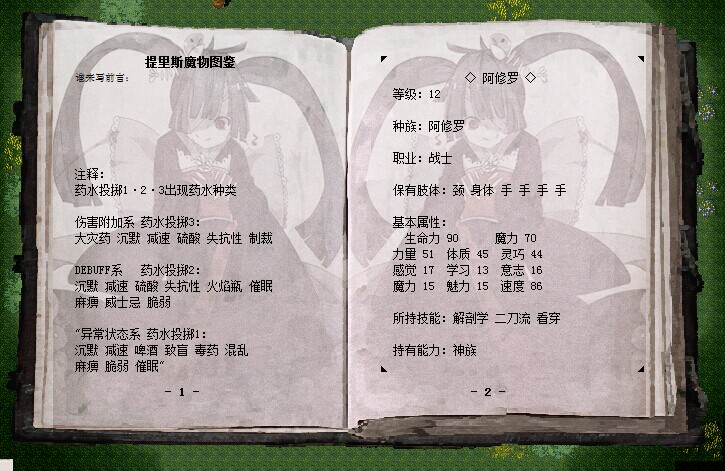 提里斯魔物图鉴
谁来写前言:
注释:
药水投掷1·2·3出现药水种类
伤害附加系 药水投掷3:
大灾药 沉默 减速 硫酸 失抗性 制裁
DEBUFF系 药水投掷2:
沉默 减速 硫酸 失抗性 火焰瓶 催眠
麻痹 威士忌 脆弱
"异常状态系 药水投掷1:
沉默 减速 啤酒 致盲 毒药 混乱
麻痹 脆弱 催眠"
- 1 -
◇ 阿修罗 ◇
等级: 12
种族: 阿修罗
职业: 战士
保有肢体: 颈 身体 手 手 手 手
基本属性:
生命力 90 魔力 70
力量 51 体质 45 灵巧 44
感觉 17 学习 13 意志 16
魔力 15 魅力 15 速度 86
所持技能: 解剖学 二刀流 看穿
持有能力: 神族
- 2 -